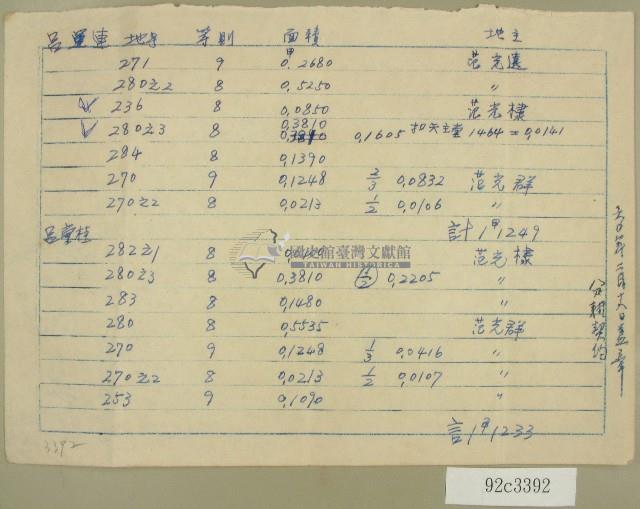 呂運連 地号 等則 面積 地主
甲
271 9 0.2680 范光遠
280之2 8 0.5250 〃
236 8 0.0850 范光棣
0.3810
280之3 8 0.1605 扣天主堂 1464 = 0.0141
284 8 0.1390
270 9 0.1248 2/3 0.0832 范光群
270之2 8 0.0213 1/2 0.0106 〃
計1甲1249
282之1 8 范光棣
280之3 8 0.3810 1/2 0.2205 〃
283 8 0.1480 〃
280 8 0.5535 范光群
270 9 0.1248 1/3 0.0416 〃
270之2 8 0.0213 1/2 0.0107 〃
253 9 0.1090 〃
計1甲1233
分耕契約
3392
92c3392
國史館臺灣文獻館
TAIWAN HISTORICA